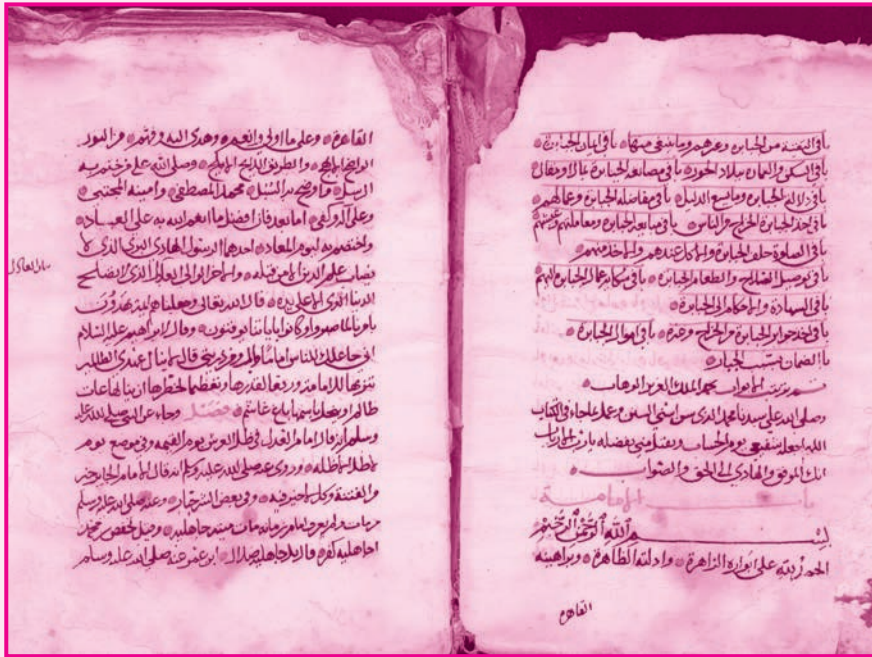 في التقية من الجبابرة وما ينبغي منها في ايمان الجبابرة
في السكن ببلاد الجورة في مصانعة الجبابرة بمال او مقال
في دلالة الجبابرة وما يسع الدليل في مفاضلة الجبابرة وعمالهم
في اخذ الجبابرة الخراج من الناس في مبايعة الجبابرة ومعاملتهم
في الصلوة خلف الجبابرة والاكل عندهم والاخذ منهم
في توصيل الطعام الجبابرة في مكاتبة عمال الجبابرة اليهم
في الشهادة والاحكام الى الجبابرة
في اخذ الجبابرة من الخراج وغيره في اموال الجبابرة
الضمان بسبب الجبار
تم ترتيب الابواب بحمد الملك العزيز الوهاب
وصلى الله على سيدنا محمد الذي سن اسنى السنن وعمل بما جاء في الكتاب
اللهم اجعله ينفعني يوم الحساب وتقبل مني بفضله يا رب الارباب
انك الموفق والهادي الى الحق والصواب
بسم الله الرحمن الرحيم
الحمد لله على انواره الزاهرة وادلته الظاهرة وبراهينه
القاهرة
القاهرة وعلى ما اولى وانعم وهدى اليه وفهم من النور
الواضح والطريق اللايح وصلى الله على من ختم به
الرسل واوضح به السبل محمد المصطفى وامينه المجتبى
وعلى آله وكفى اما بعد فان افضل ما انعم الله به على العباد
واختصهم به ليوم المعاد احدهما الرسول الهادي الذي لا
علم الدين الا من قبله والاخر الوالي العادل الذي لا تصلح
الدنيا الا على يديه قال الله تعالى وجعلناهم ايمة يهدون
بامرنا لما صبروا وكانوا باياتنا يوقنون وقال لابراهيم عليه السلام
اني جاعلك للناس اماما قال ومن ذريتي قال لا ينال عهدي الظالمين
تنزيها للامامة ورفعا لقدرها وتعظيما لخطرها ان ينالها عات
ظالم او باغ غاشم فصل وجاء عن النبي صلى الله عليه
وسلم انه قال امام العدل في ظل العرش يوم القيمة وفي موضع يوم
لا ظل الا ظله وروي عنه صلى الله عليه وسلم انه قال الامام الجاير خير
من الفتنة وكل لا خير فيه وفي بعض الشر خيار وعنه صلى الله عليه وسلم
من مات ولم يعرف امام زمانه مات ميتة جاهلية وقيل
جاهلية كفر قال بل جاهلية ضلال ابو عنه صلى الله عليه وسلم